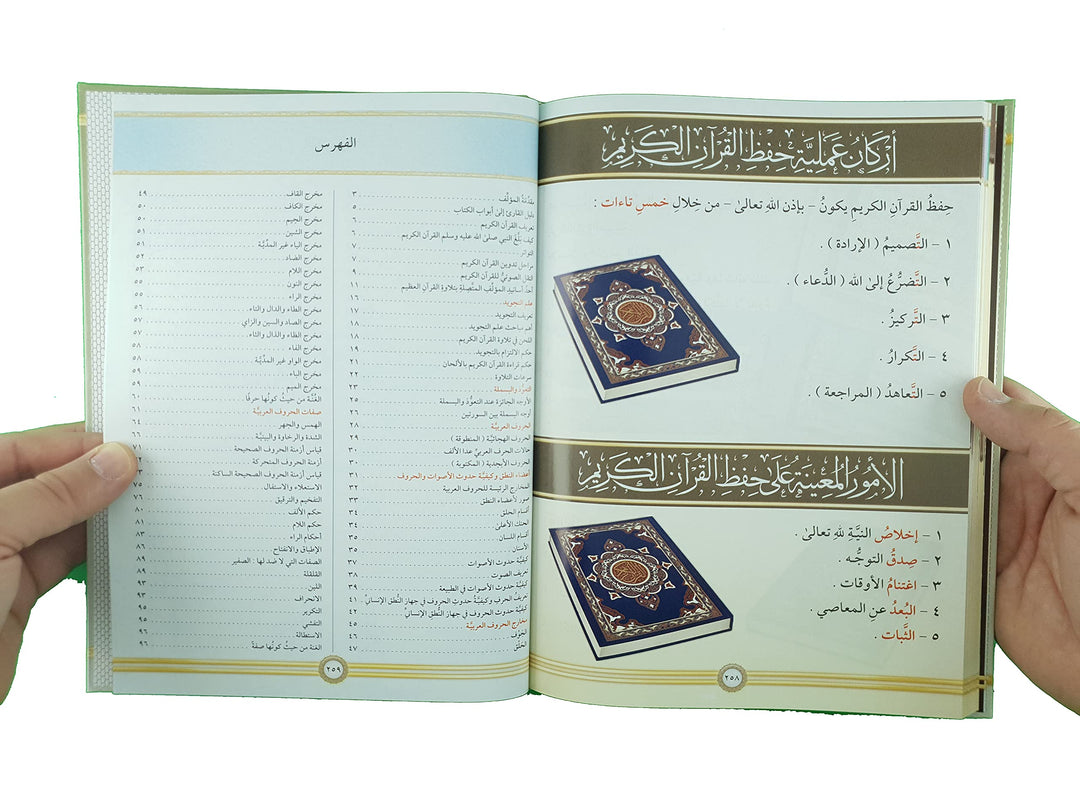 أركان عملية حفظ القرآن الكريم
حفظُ القرآنِ الكريمِ يكونُ - بإذن اللهِ تعالىٰ - من خِلالِ خمسِ تاءات :
١ - التَّصميمُ ( الإرادة ) .
٢ - التَّضرُّعُ إلىٰ الله ( الدُّعاء ) .
٣ - التَّركيزُ .
٤ - التَّكرارُ .
٥ - التَّعاهدُ ( المراجعة ) .
الأمور المعينة على حفظ القرآن الكريم
١ - إخلاصُ النيَّةِ لله تعالىٰ .
٢ - صِدقُ التوجُّه .
٣ - اغتنامُ الأوقات .
٤ - البُعدُ عنِ المعاصي .
٥ - الثَّبات .
٢٥٨
الفهرس
مقدّمة المؤلِّف ٣
دليل القارئ إلى أبواب الكتاب ٥
تعريف القرآن الكريم ٦
كيف بلَّغ النبي صلى الله عليه وسلم القرآن الكريم ٦
التواتر ٧
مراحل تدوين القرآن الكريم ٧
النقل الصوتيُّ للقرآن الكريم ٩
أحد أسانيد المؤلِّف المتَّصلة بتلاوة القرآن العظيم ١١
علم التجويد ١٦
تعريف التجويد ١٧
أهم مباحث علم التجويد ١٨
اللحن في تلاوة القرآن الكريم ١٨
حكم الالتزام بالتجويد ١٩
حكم قراءة القرآن الكريم بالألحان ٢١
سرعات التلاوة ٢٢
التعوُّذ والبسملة ٢٣
الأوجه الجائزة عند التعوُّذ والبسملة ٢٥
أوجه البسملة بين السورتين ٢٦
الحروف العربيَّة ٢٨
الحروف الهجائيَّة ( المنطوقة ) ٢٩
حالات الحرف العربيّ عدا الألف ٣٠
الحروف الأبجدية ( المكتوبة ) ٣٠
أعضاء النطق وكيفيَّة حدوث الأصوات والحروف ٣١
المخارج الرئيسة للحروف العربية ٣٢
صور لأعضاء النطق ٣٣
أقسام الحلق ٣٤
الحنك الأعلىٰ ٣٤
أقسام اللسان ٣٥
الأسنان ٣٥
كيفيَّة حدوث الأصوات ٣٧
تعريف الصوت ٣٨
كيفيَّة حدوث الأصوات في الطبيعة ٣٩
تعريف الحرف وكيفيَّة حدوث الحروف في جهاز النُّطق الإنسانيّ ٤١
كيفيَّة حدوث الحروف في جهاز النُّطق الإنسانيّ ٤٢
مخارج الحروف العربيَّة ٤٥
الجَوْف ٤٦
الحلق ٤٧
مخرج القاف ٤٩
مخرج الكاف ٥٠
مخرج الجيم ٥٠
مخرج الشين ٥١
مخرج الياء غير المدِّيَّة ٥١
مخرج الضاد ٥٢
مخرج اللام ٥٣
مخرج النون ٥٥
مخرج الراء ٥٥
مخرج الطاء والدال والتاء ٥٦
مخرج الصاد والسين والزاي ٥٧
مخرج الظاء والذال والثاء ٥٧
مخرج الفاء ٥٨
مخرج الواو غير المدِّيَّة ٥٨
مخرج الباء ٥٩
مخرج الميم ٥٩
الغُنَّة من حيثُ كونُها حرفًا ٦٠
صفات الحروف العربيَّة ٦١
الهمس والجهر ٦٤
الشدة والرخاوة والبينيَّة ٦٦
قياس أزمنة الحروف الصحيحة ٧١
أزمنة الحروف المتحركة
قياس أزمنة الحروف الصحيحة الساكنة
الاستعلاء والاستفال ٧٥
التفخيم والترقيق ٧٦
حكم الألف ٨٠
حكم اللام ٨١
أحكام الراء ٨٣
الإطباق والانفتاح ٨٦
الصفات التي لا ضد لها : الصفير ٨٩
القلقلة ٨٩
اللين ٩٣
الانحراف ٩٣
التكرير ٩٤
التفشي ٩٥
الاستطالة ٩٦
الغنة من حيثُ كونُها صفةً ٩٦
٢٥٩